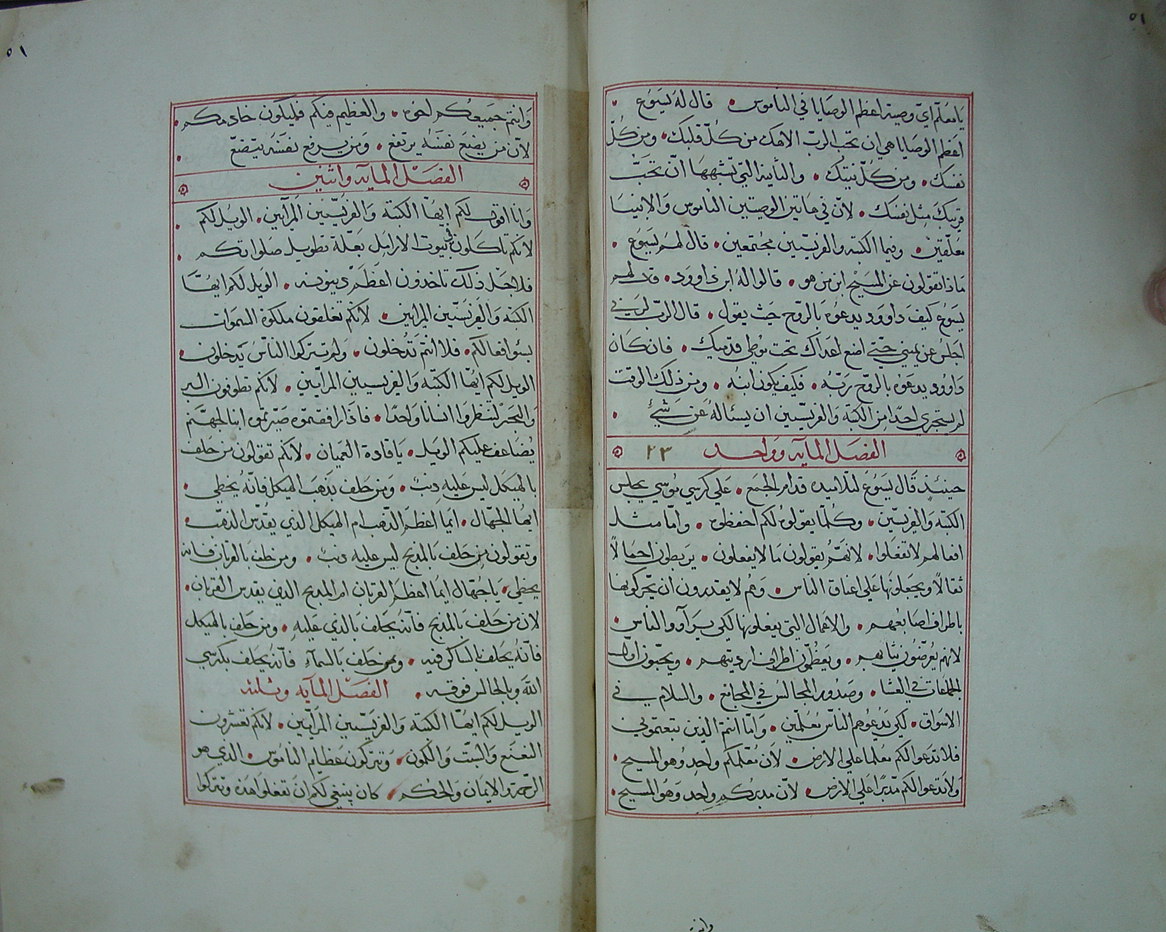 ٥١
يا معلم اي وصية اعظم الوصايا في الناموس • قال له يسوع
اعظم الوصايا هي ان تحب الرب الاهك من كل قلبك • ومن كل
نفسك • ومن كل نيتك • والثانية التي تشبهها ان تحب
قريبك مثل نفسك • لان في هاتين الوصيتين الناموس والانبيا
معلقين • وفيما الكتبة والفريسيين مجتمعين • قال لهم يسوع •
ماذا تقولون عن المسيح ابن من هو • قالوا له ابن داوود • قال لهم
يسوع كيف داوود يدعوه بالروح حيث يقول • قال الرب لربي
اجلس عن يميني حتى اضع اعداك تحت موطي قدميك • فان كان
داوود يدعوه بالروح ربه • فكيف يكون ابنه • ومن ذلك الوقت
لم يستجري احد من الكتبة والفريسيين ان يسئاله عن شئ •
الفصل المايه وواحد ٢٣
حينيذ قال يسوع لتلاميذه قدام الجمع • على كرسي موسي يجلس
الكتبة والفريسين • وكلما يقولوه لكم احفظوه • واما مثل
افعالهم لا تفعلوا • لانهم يقولون ما لا يفعلون • يربطون احمالا
ثقالا ويجعلونها على اعناق الناس • وهم لا يقدرون ان يحركونها
باطراف اصابعهم • والاعمال التي يعملونها لكي يرآوو الناس •
لانهم يعرضون ثيابهم • ويعظمون اطراف ارديتهم • ويحبون اول
المتكات في العشا • وصدور المجالس في المجامع • والسلام في
الاسواق • لكي يدعوهم الناس معلمين • واما انتم الذين تتبعتموني
فلا تدعوا لكم معلما على الارض • لان معلمكم واحد وهو المسيح •
ولا تدعوا لكم مدبرا على الارض • لان مدبركم واحد وهو المسيح •
وانتم
٥١
وانتم جميعكم اخوه • والعظيم فيكم فليكون خادمكم •
لان من يضع نفسه يرتفع • ومن يرفع نفسه يتضع •
الفصل المايه واثنين
وانا اقول لكم ايها الكتبة والفريسيين المرآيين • الويل لكم •
لانكم تاكلون بيوت الارامل بعلة تطويل صلواتكم •
فلاجل ذلك تاخدون اعظم دينونه • الويل لكم ايها
الكتبة والفريسيين المرايين • لانكم تغلقون ملكوة السموات
الناس • فلا انتم تدخلون • ولا تتركوا الناس يدخلون •
الويل لكم ايها الكتبة والفريسيين المرآيين • لانكم تطوفون البر
والبحر لتنظروا انسانا واحدا • فاذا صيرتموه ابنا لجهنم
يضاعف عليكم الويل • يا قادة العميان • لانكم تقولون من حلف
بالهيكل ليس عليه دنب • ومن حلف بذهب الهيكل فانه يخطي •
ايها الجهال • ايما اعظم الذهب ام الهيكل الذي يقدس الذهب •
وتقولون من حلف بالمذبح ليس عليه دنب • ومن حلف بالقربان فانه
يخطي • يا جهال ايما اعظم القربان ام المذبح الذي يقدس القربان •
لان من حلف بالمذبح فانه يحلف بالذي عليه • ومن حلف بالهيكل
فانه يحلف بالساكن فيه • ومن حلف بالسمآء فانه يحلف بكرسي
الله وبالجالس فوقه • الفصل المايه وثلثه
الويل لكم ايها الكتبة والفريسيين المرآيين • لانكم تعشرون
النعنع والشبت والكمون • وتتركون عظايم الناموس • الذي هو
الرحمة والايمان والحكم • كان ينبغي لكم ان تفعلوا هذه وتتركوا